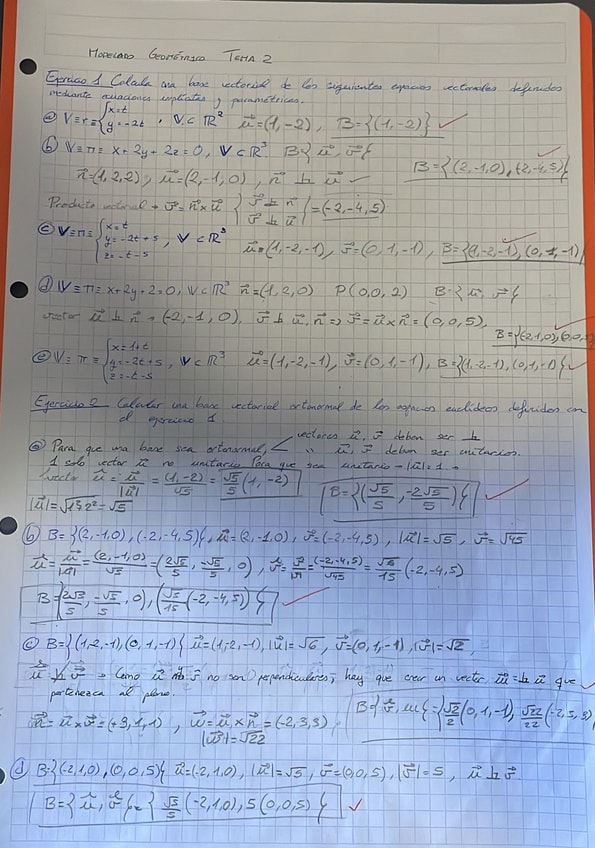 MODELADO GEOMÉTRICO TEMA 2
Ejercicio 1 Calcula una base vectorial de los siguientes espacios vectoriales definidos
mediante ecuaciones implícitas y paramétricas.
a) V≡r≡{x=t y=-2t, V⊂ℝ² u⃗=(1,-2), B={(1,-2)}
b) V≡π≡ x+2y+2z=0, V⊂ℝ³ B{u⃗, v⃗} B={(2,-1,0),(-2,-4,5)}
n⃗=(1,2,2), u⃗=(2,-1,0), n⃗ ⊥ u⃗
Producto vectorial → v⃗=n⃗×u⃗ {v⃗ ⊥ n⃗ v⃗ ⊥ u⃗}=(-2,-4,5)
c) V≡π≡{x=t y=-2t+s z=-t-s, V⊂ℝ³ u⃗=(1,-2,-1), v⃗=(0,1,-1), B={(1,-2,-1),(0,1,-1)}
d) V≡π≡x+2y+2=0, V⊂ℝ³ n⃗=(1,2,0) P(0,0,2) B={u⃗, v⃗}
vector u⃗ ⊥ n⃗ → (-2,-1,0), v⃗ ⊥ u⃗, n⃗ => v⃗=u⃗×n⃗=(0,0,5), B={(-2,1,0),(0,0,5)}
e) V≡π≡{x=1+t y=-2t+s z=-t-s, V⊂ℝ³ u⃗=(1,-2,-1), v⃗=(0,1,-1), B={(1,-2,-1),(0,1,-1)}
Ejercicio 2 Calcular una base vectorial ortonormal de los espacios euclídeos definidos en
el ejercicio 1.
a) Para que una base sea ortonormal, vectores u⃗, v⃗ deben ser ⊥
u⃗, v⃗ deben ser unitarios.
1 solo vector u⃗ no unitario Para que sea unitario → |u⃗|=1 →
vector û=u⃗/|u⃗|=(1,-2)/√5=√5/5(1,-2) B={(√5/5, -2√5/5)}
|u⃗|=√1²+2²=√5
b) B={(2,-1,0),(-2,-4,5)}, u⃗=(2,-1,0), v⃗=(-2,-4,5), |u⃗|=√5, v⃗=√45
û=u⃗/|u⃗|=(2,-1,0)/√5=(2√5/5, -√5/5, 0), v̂=v⃗/|v⃗|=(-2,-4,5)/√45=√5/15(-2,-4,5)
B={(2√5/5, -√5/5, 0),(√5/15(-2,-4,5)}
c) B={(1,-2,-1),(0,1,-1)} u⃗=(1,-2,-1), |u⃗|=√6, v⃗=(0,1,-1), |v⃗|=√2,
u⃗ ⊥ v⃗ → Como u⃗ y v⃗ no son perpendiculares, hay que crear un vector w⃗ ⊥ u⃗ que
pertenezca al plano.
n⃗=u⃗×v⃗=(+3,1,1), w⃗=u⃗×n⃗=(-2,3,3) B={v̂, ŵ}={√2/2(0,1,-1), √22/22(-2,3,3)}
|w⃗|=√22
d) B={(-2,1,0),(0,0,5)} u⃗=(-2,1,0), |u⃗|=√5, v⃗=(0,0,5), |v⃗|=5, u⃗ ⊥ v⃗
B={û, v̂}={√5/5(-2,1,0),5(0,0,5)}